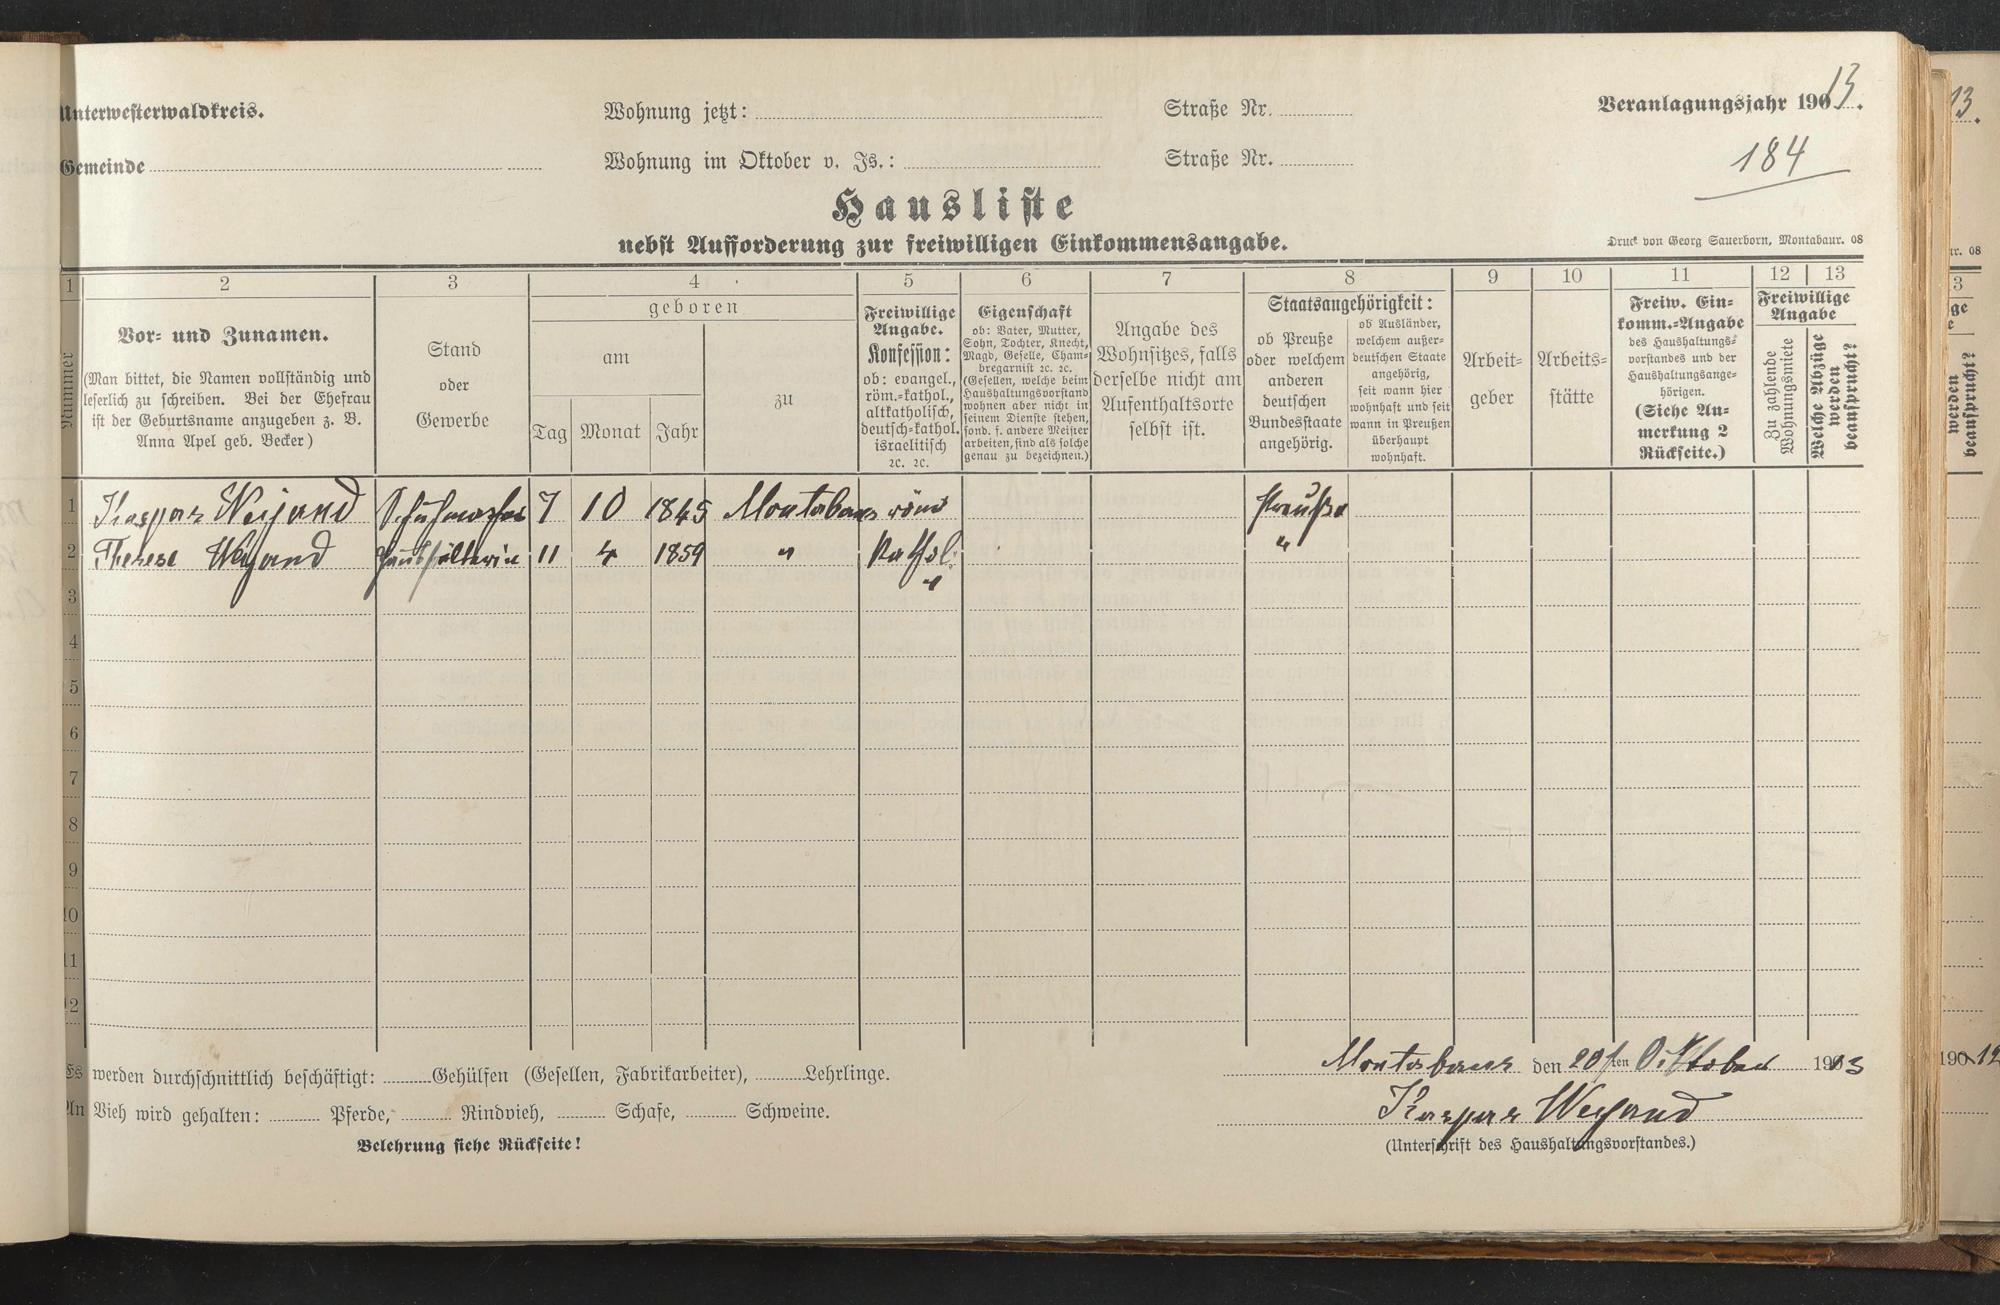 Unterwesterwaldkreis.
Wohnung jetzt: Straße Nr.
Veranlagungsjahr 1913.
Gemeinde
Wohnung im Oktober v. Js.: Straße Nr.
184
Hausliste
nebst Aufforderung zur freiwilligen Einkommensangabe.
Druck von Georg Sauerborn, Montabaur. 08
1 2 3 4 5 6 7 8 9 10 11 12 13
Nummer
Vor- und Zunamen.
(Man bittet, die Namen vollständig und
leserlich zu schreiben. Bei der Ehefrau
ist der Geburtsname anzugeben z. B.
Anna Apel geb. Becker)
Stand
oder
Gewerbe
geboren
am
Tag Monat Jahr
zu
Freiwillige
Angabe.
Konfession:
ob: evangel.,
röm.-kathol.,
altkatholisch,
deutsch-kathol.
israelitisch
ꝛc. ꝛc.
Eigenschaft
ob: Vater, Mutter,
Sohn, Tochter, Knecht,
Magd, Geselle, Cham-
bregarnist ꝛc. ꝛc.
(Gesellen, welche beim
Haushaltungsvorstand
wohnen aber nicht in
seinem Dienste stehen,
sond. f. andere Meister
arbeiten, sind als solche
genau zu bezeichnen.)
Angabe des
Wohnsitzes, falls
derselbe nicht am
Aufenthaltsorte
selbst ist.
Staatsangehörigkeit:
ob Preuße
oder welchem
anderen
deutschen
Bundesstaate
angehörig.
ob Ausländer,
welchem außer-
deutschen Staate
angehörig,
seit wann hier
wohnhaft und seit
wann in Preußen
überhaupt
wohnhaft.
Arbeit-
geber
Arbeits-
stätte
Freiw. Ein-
komm.-Angabe
des Haushaltungs-
vorstandes und der
Haushaltungsange-
hörigen.
(Siehe An-
merkung 2
Rückseite.)
Freiwillige
Angabe
Zu zahlende
Wohnungsmiete
Welche Abzüge
werden
beansprucht?
1 Kaspar Weyand Schuhmacher 7 10 1845 Montabaur röm Preuße
2 Therese Weyand Haushälterin 11 4 1859 " Kathol. "
"
3
4
5
6
7
8
9
10
11
12
Es werden durchschnittlich beschäftigt: Gehülfen (Gesellen, Fabrikarbeiter), Lehrlinge.
Montabaur den 20sten Oktober 1913
An Vieh wird gehalten: Pferde, Rindvieh, Schafe, Schweine.
Kaspar Weyand
Belehrung siehe Rückseite!
(Unterschrift des Haushaltungsvorstandes.)